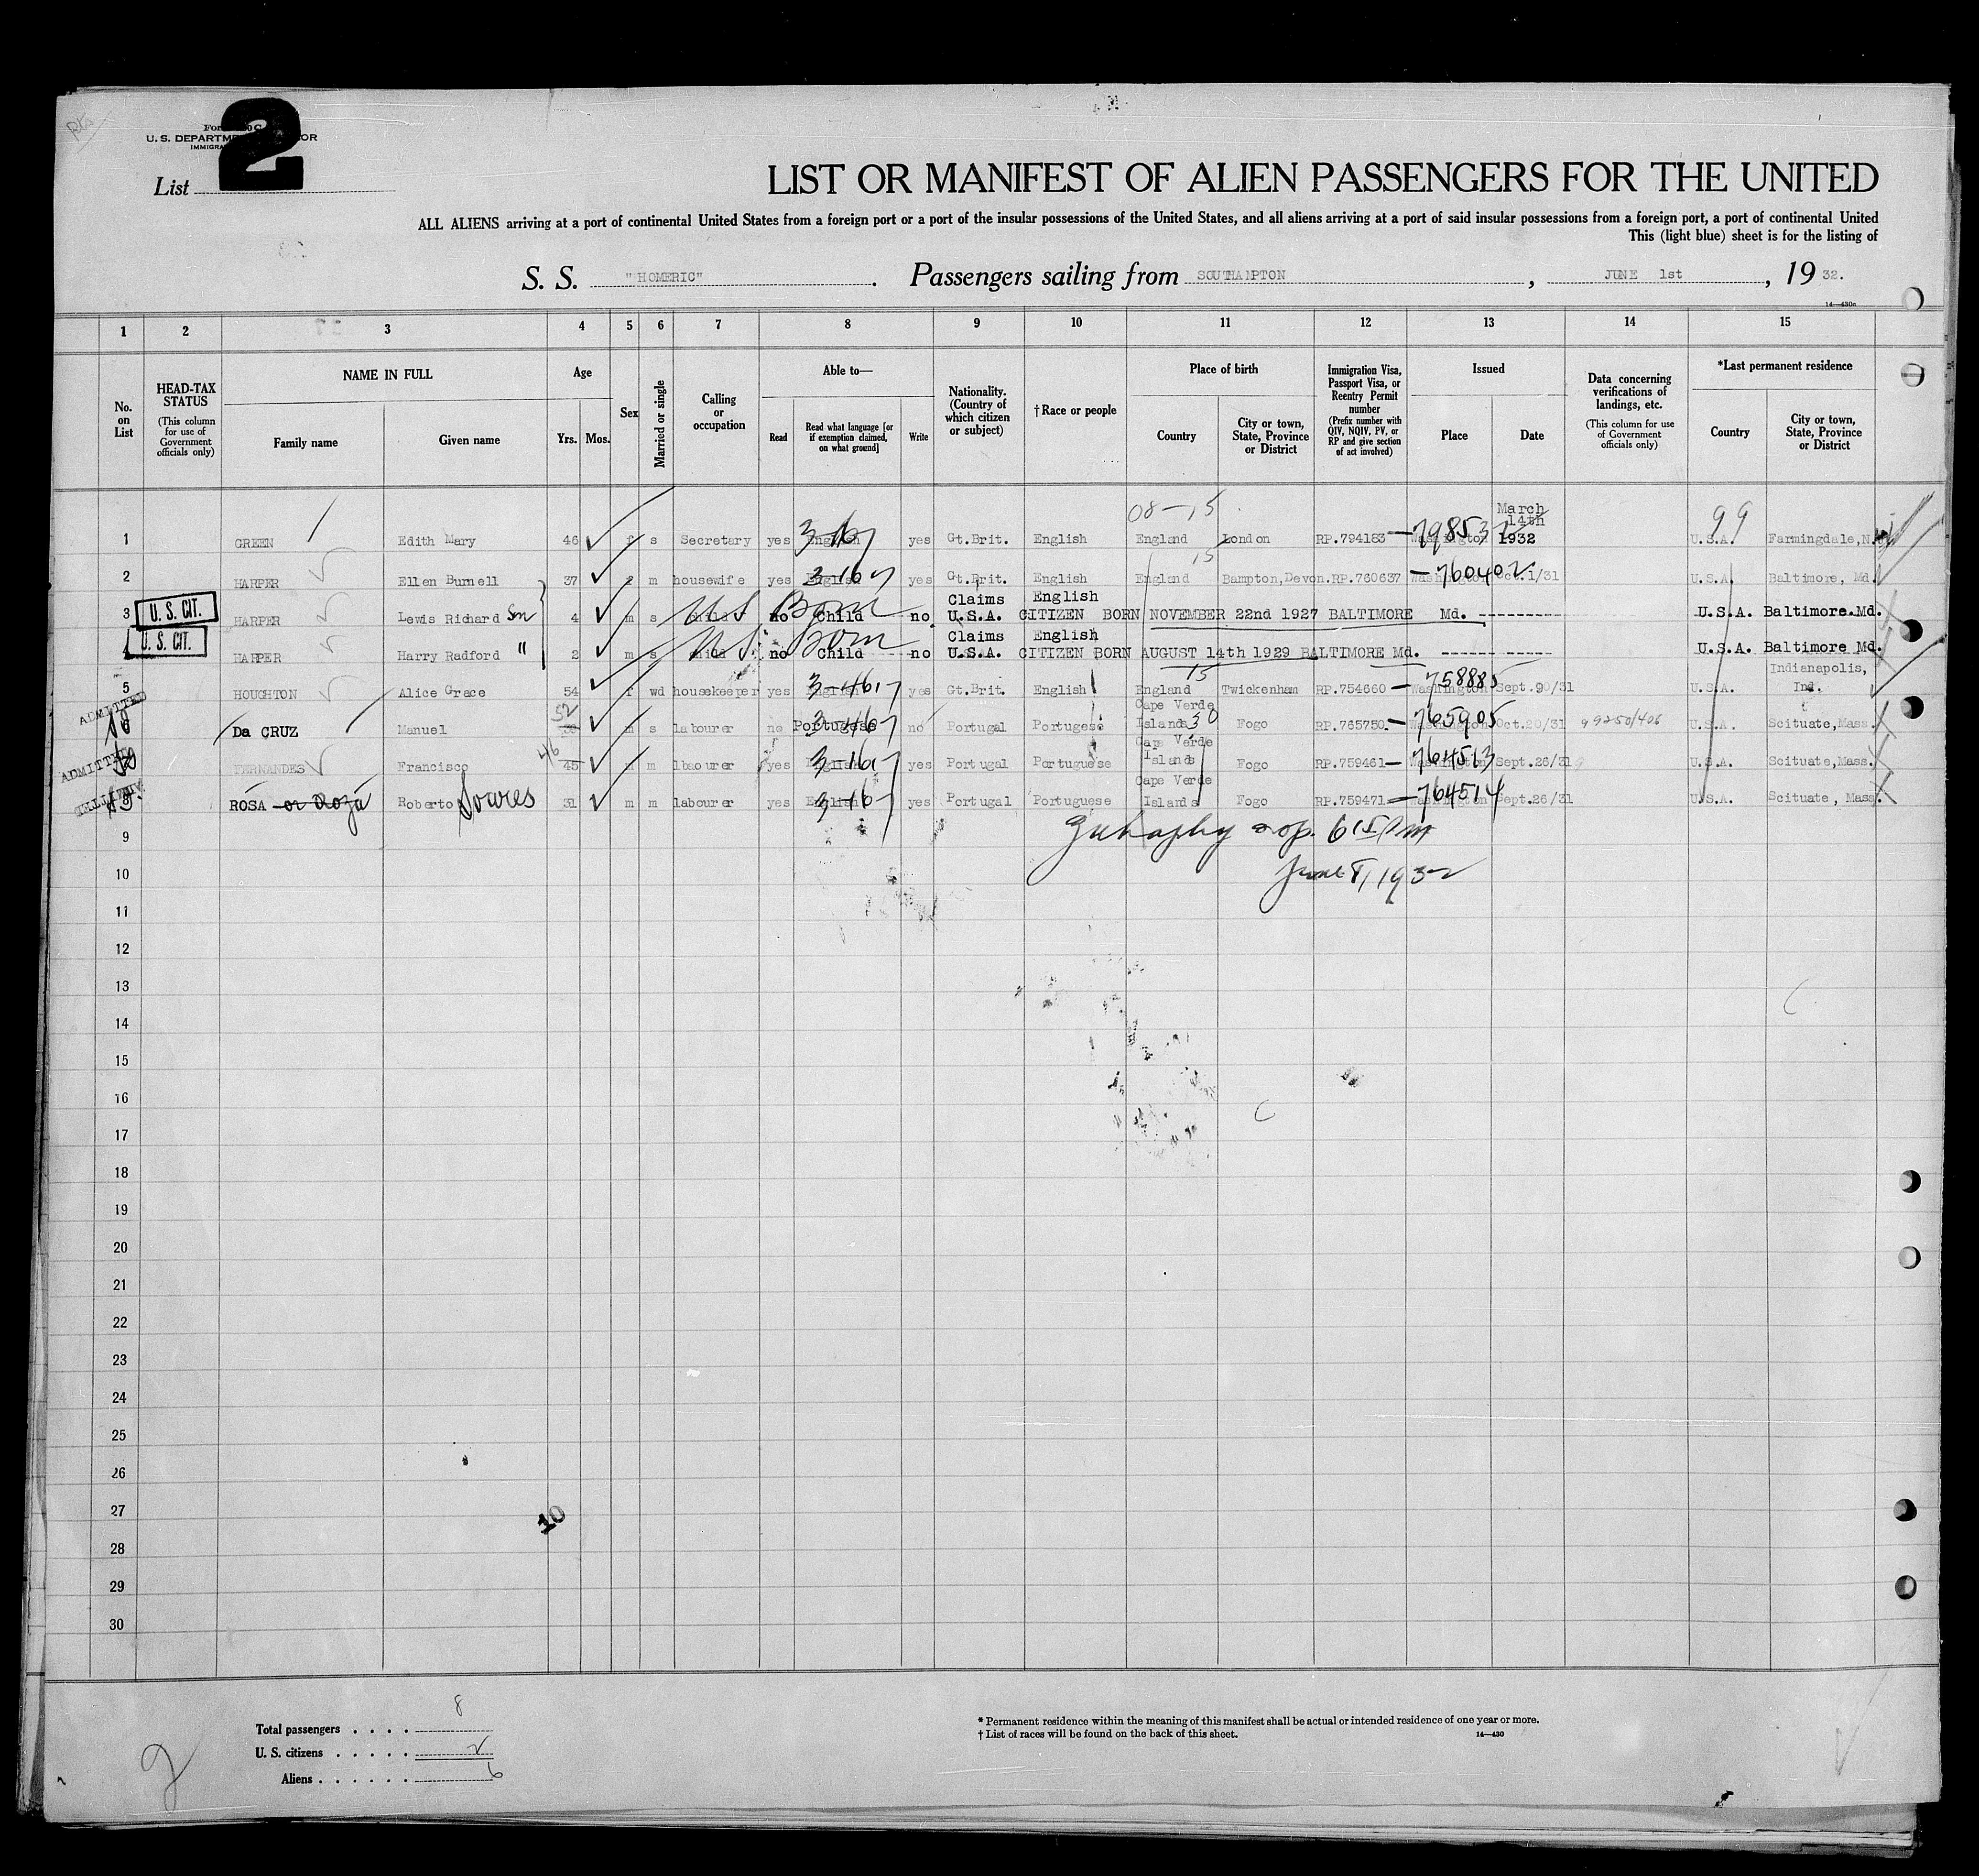 U. S. DEPARTM OR
IMMIGRA
2
List
LIST OR MANIFEST OF ALIEN PASSENGERS FOR THE UNITED
ALL ALIENS arriving at a port of continental United States from a foreign port or a port of the insular possessions of the United States, and all aliens arriving at a port of said insular possessions from a foreign port, a port of continental United
This (light blue) sheet is for the listing of
S. S. "HOMERIC". Passengers sailing from SOUTHAMPTON, JUNE 1st, 19 32.
14—430a
1 2 3 4 5 6 7 8 9 10 11 12 13 14 15
No. on List
HEAD-TAX STATUS (This column for use of Government officials only)
NAME IN FULL
Family name
Given name
Age
Yrs. Mos.
Sex
Married or single
Calling or occupation
Able to—
Read
Read what language [or if exemption claimed, on what ground]
Write
Nationality. (Country of which citizen or subject)
†Race or people
Place of birth
Country
City or town, State, Province or District
Immigration Visa, Passport Visa, or Reentry Permit number (Prefix number with QIV, NQIV, PV, or RP and give section of act involved)
Issued
Place
Date
Data concerning verifications of landings, etc. (This column for use of Government officials only)
*Last permanent residence
Country
City or town, State, Province or District
08-15 99
1 GREEN Edith Mary 46 f s Secretary yes English yes Gt.Brit. English England London RP.794183 — 798537 Washington March 14th 1932 U.S.A. Farmingdale, N.
2 HARPER Ellen Burnell 37 f m housewife yes English yes Gt.Brit. English England 15 Bampton, Devon. RP.760637 — 760402 Washington Oct.1/31 U.S.A. Baltimore, Md.
3 U. S. CIT. HARPER Lewis Richard Son 4 m s child US Born no Child no Claims U.S.A. English CITIZEN BORN NOVEMBER 22nd 1927 BALTIMORE Md. ---------- U.S.A. Baltimore.Md.
4 U. S. CIT. HARPER Harry Radford " 2 m s child US Born no Child no Claims U.S.A. English CITIZEN BORN AUGUST 14th 1929 BALTIMORE Md. ---------- U.S.A. Baltimore Md.
5 HOUGHTON Alice Grace 54 f wd housekeeper yes English yes Gt.Brit. English England 15 Twickenham RP.754660 — 758885 Washington U.S.A. Indianapolis, Ind.
ADMITTED Da CRUZ Manuel 52 m s labourer no Portugese no Portugal Portugese Cape Verde Islands 30 Fogo RP.765750. — 765905 Washington Oct.20/31 U.S.A. Scituate, Mass.
ADMITTED FERNANDES Francisco 46 45 m m lbaourer yes English yes Portugal Portuguese Cape Verde Islands Fogo RP.759461 — 764513 Washington Sept.26/31 U.S.A. Scituate, Mass.
ADMITTED ROSA or Roza Roberto Soares 31 m m labourer yes English yes Portugal Portuguese Cape Verde Islands Fogo RP.759471 — 764514 Washington Sept.26/31 U.S.A. Scituate, Mass.
9
June 8, 1932
10
11
12
13
14
15
16
17
18
19
20
21
22
23
24
25
26
27
10
28
29
30
Total passengers . . . . 8
U. S. citizens . . . . . 2
Aliens . . . . . . 6
2
* Permanent residence within the meaning of this manifest shall be actual or intended residence of one year or more.
† List of races will be found on the back of this sheet. 14—430